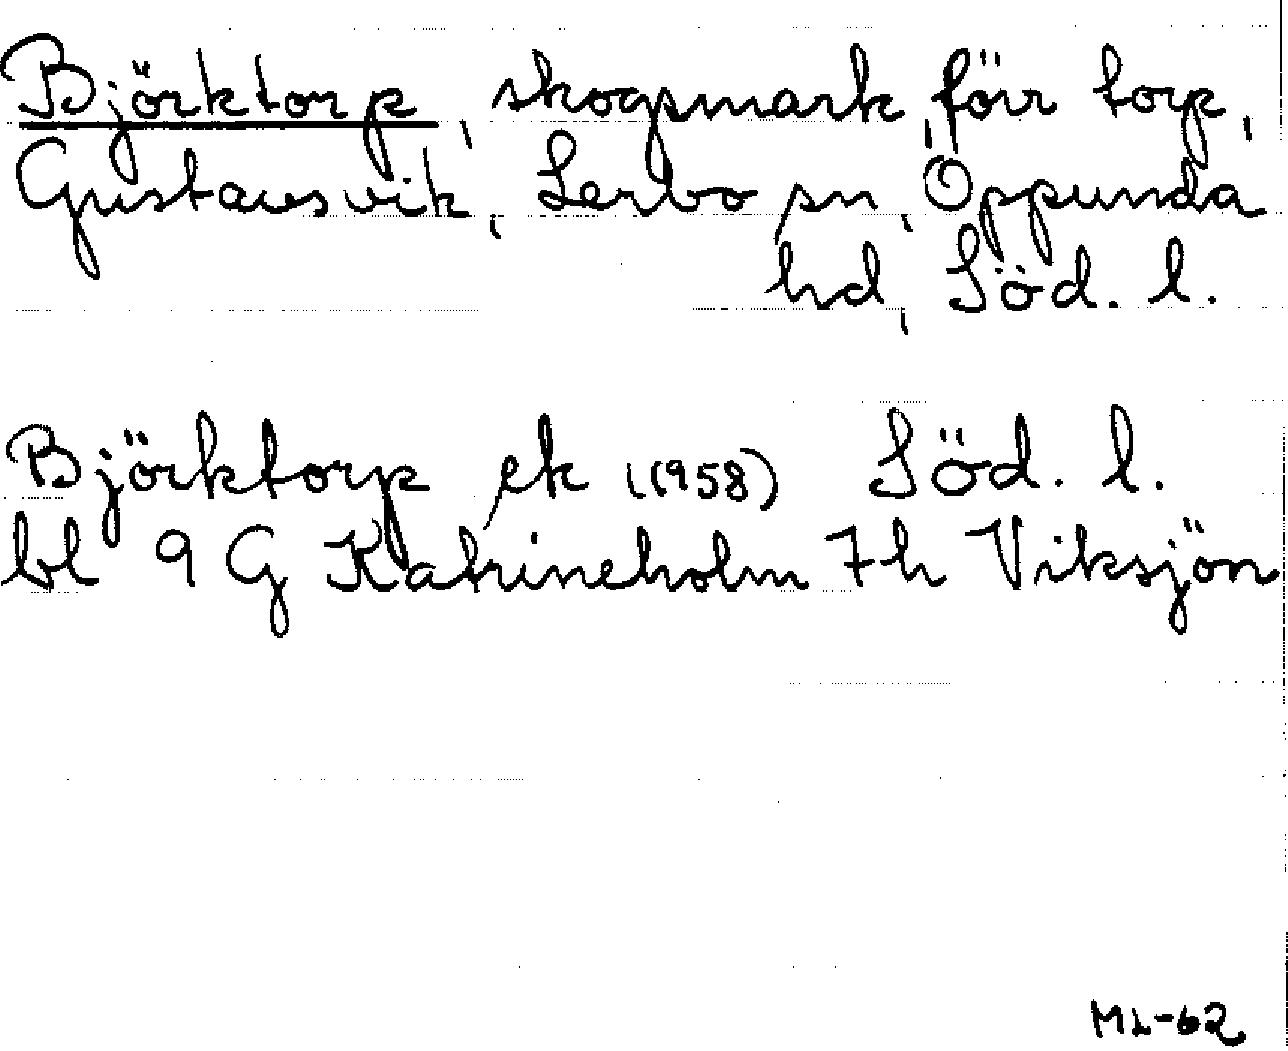 Björktorp, skogsmark, förr torp,
Gustavsvik, Lerbo sn, Oppunda
hd, Söd. l.
Björktorp ek (1958) Söd. l.
bl 9 G Katrineholm 7h Viksjön
ML-62